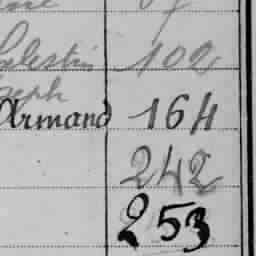 Celestin 102
seph
Armand 164
242
253